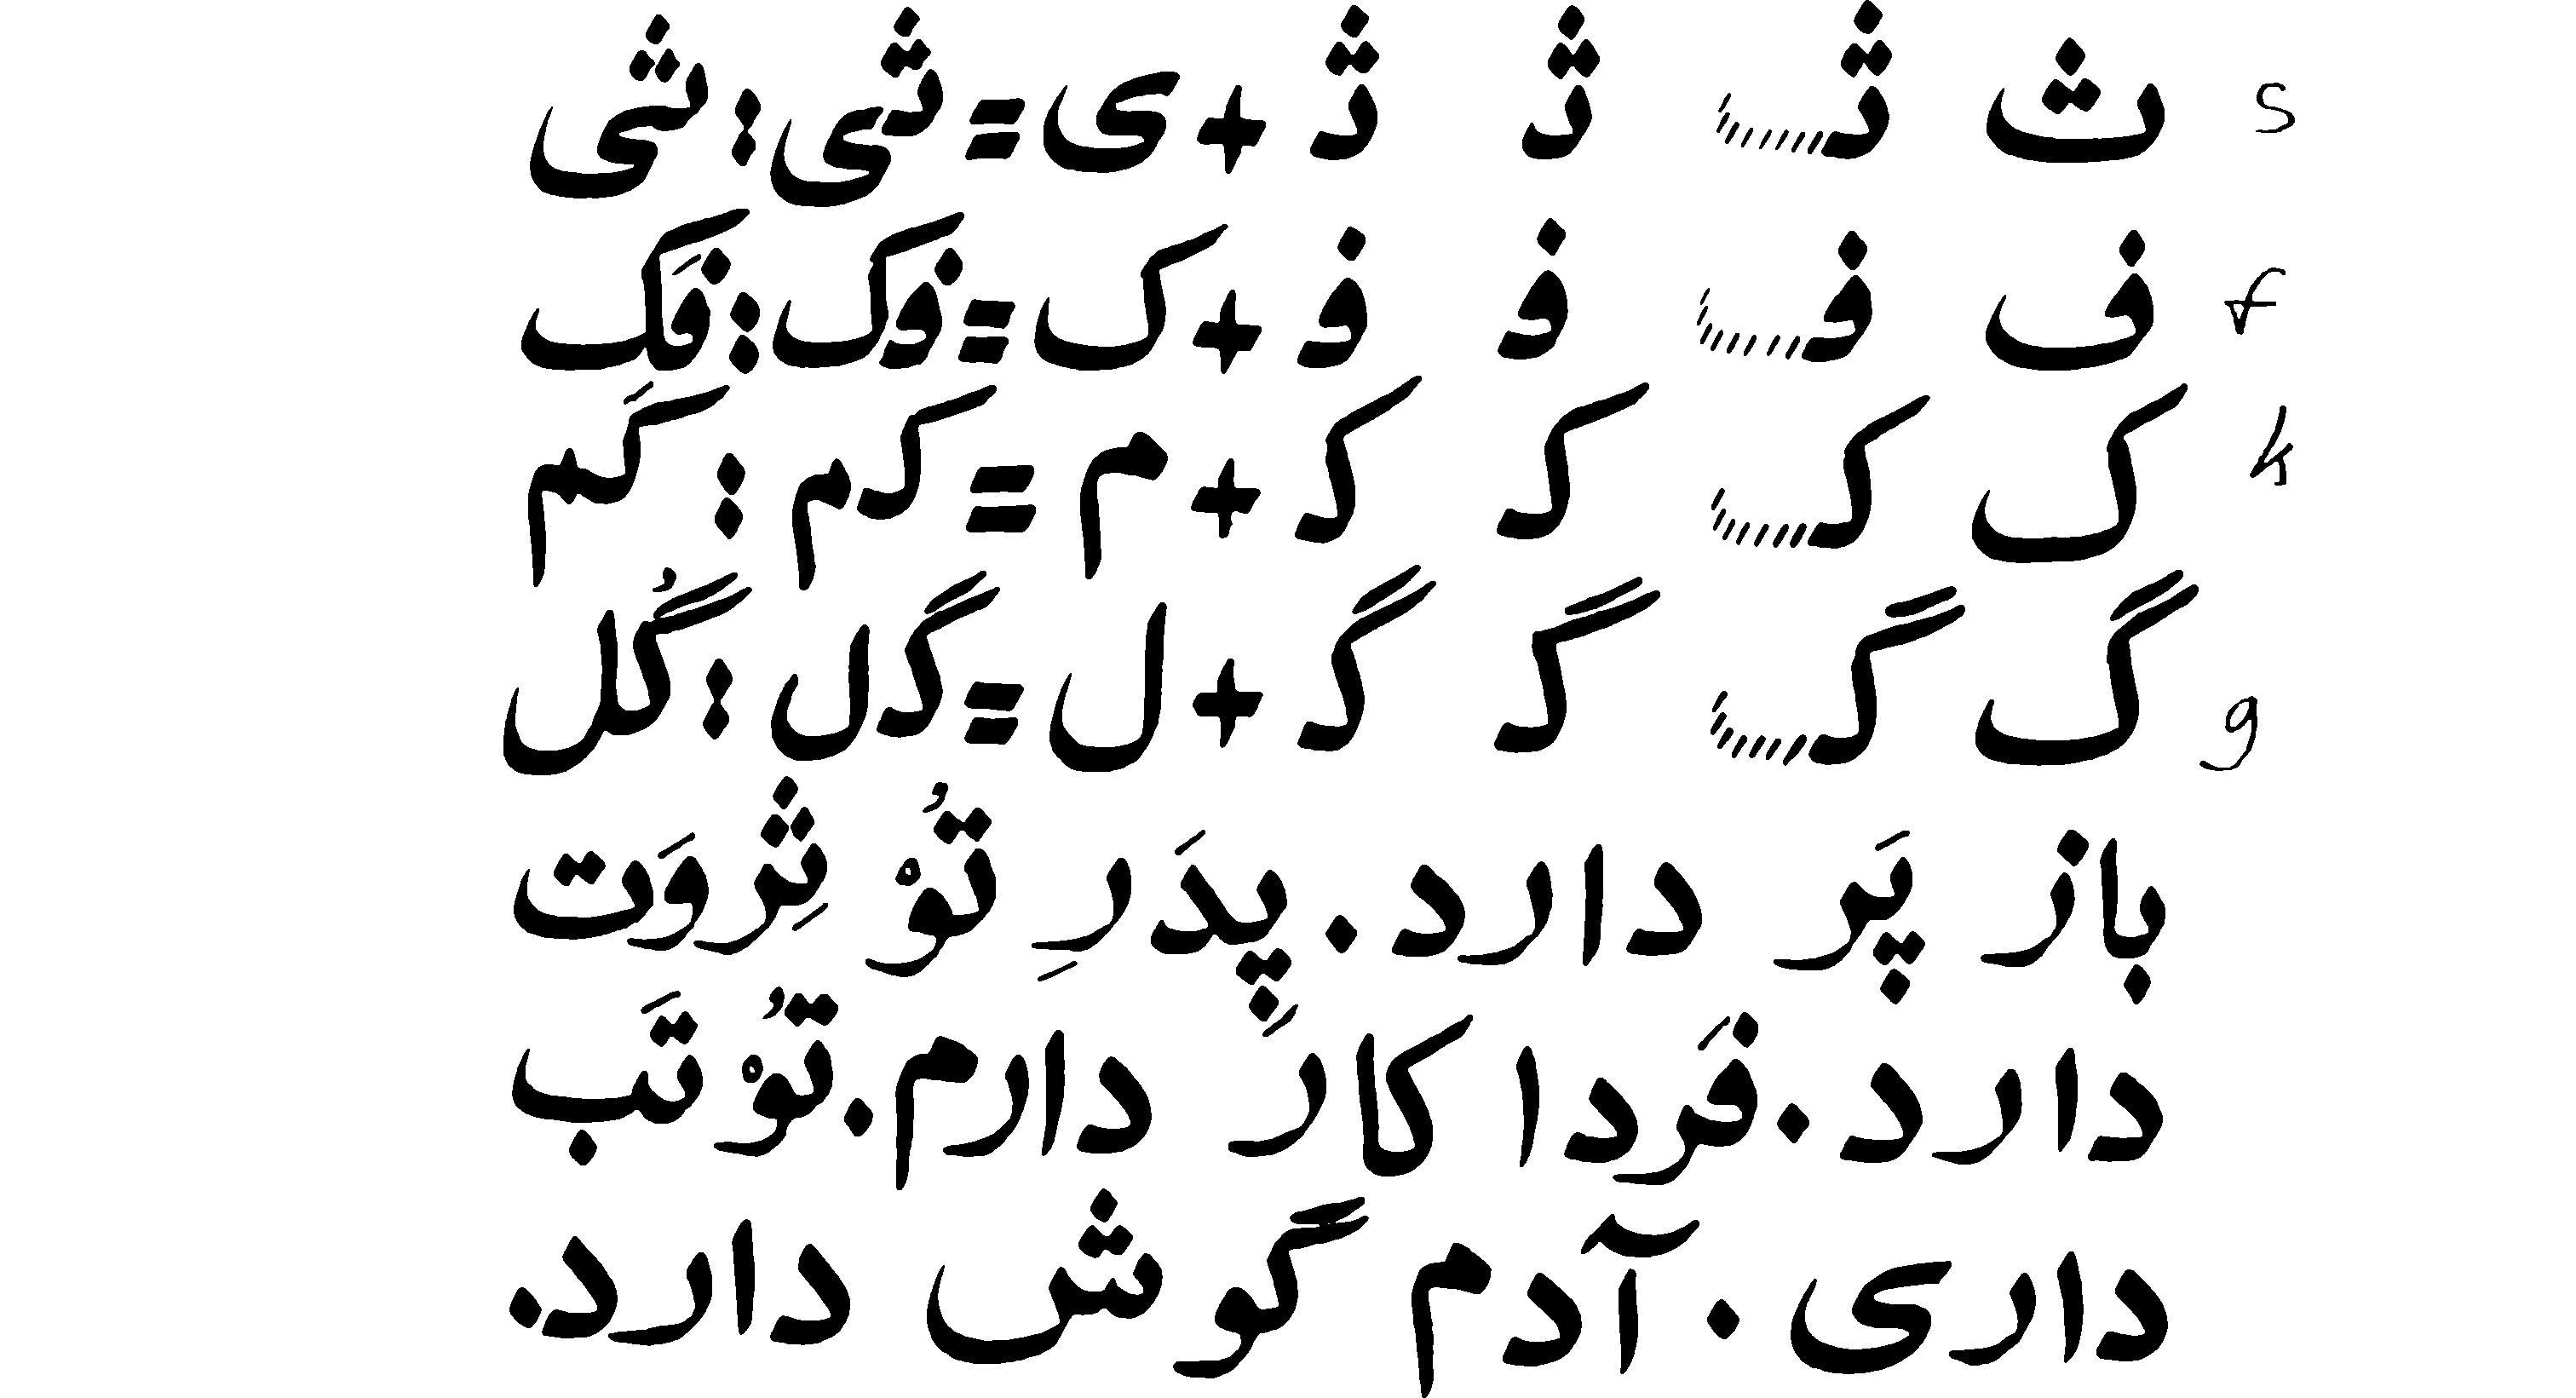 s ث ثـ ثـ ثـ + ی = ثـی : ثی
f ف فـ فـ فـ + ک = فـک : فَک
k ک کـ کـ کـ + م = کـم : کَم
g گ گـ گـ گـ + ل = گـل : گُل
باز پَر دارد. پِدَرِ تُوْ ثِروَت
دارد. فَردا کار دارم. تُوْ تَب
داری. آدم گوش دارد.